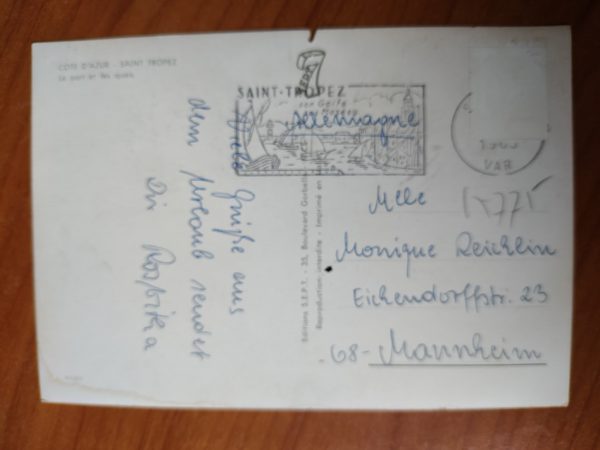 COTE D'AZUR - SAINT TROPEZ
Le port et les quais
SAINT-TROPEZ
son Golfe
VAR
Allemagne
Viele Grüße aus
dem Urlaub sendet
Editions S.E.P.T. - 35, Boulevard
Reproduction interdite - Imprimé en
Melle
Monique Reichlin
Eichendorffstr. 23
68- Mannheim